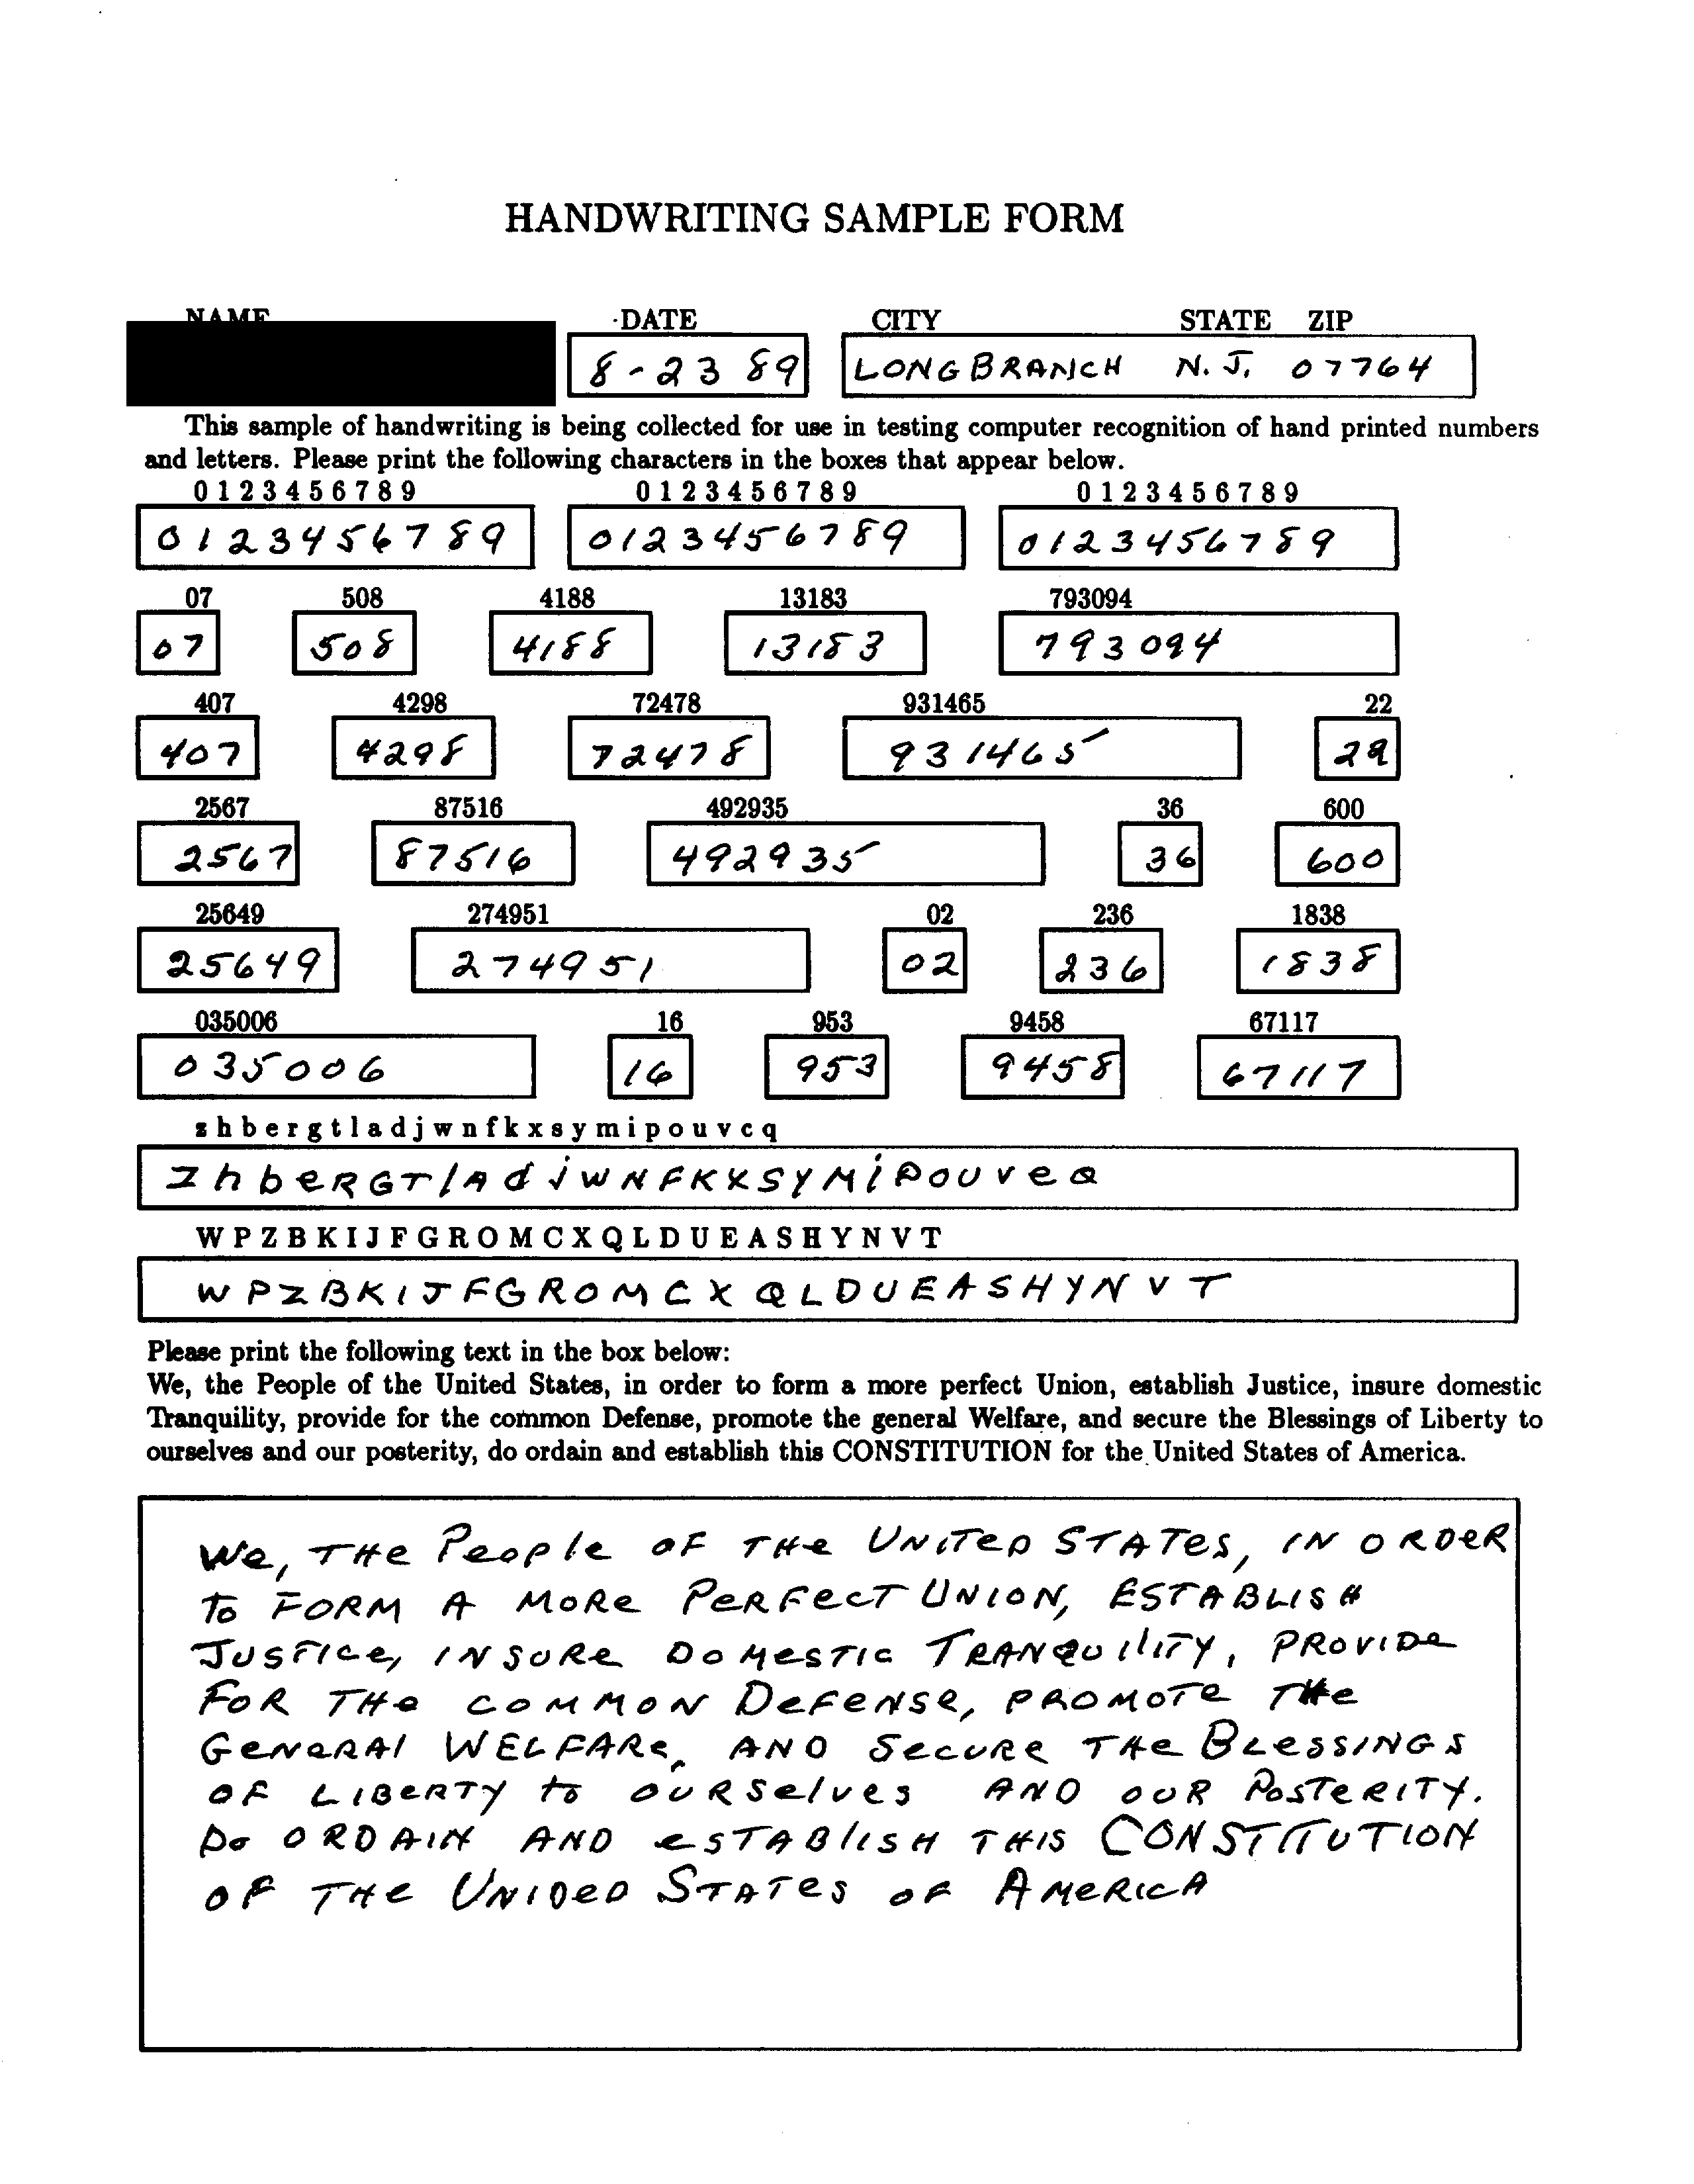 HANDWRITING SAMPLE FORM
NAME DATE CITY STATE ZIP
8-23 89 LONG BRANCH N.J. 07764
This sample of handwriting is being collected for use in testing computer recognition of hand printed numbers
and letters. Please print the following characters in the boxes that appear below.
0 1 2 3 4 5 6 7 8 9 0 1 2 3 4 5 6 7 8 9 0 1 2 3 4 5 6 7 8 9
0123456789 0123456789 0123456789
07 508 4188 13183 793094
07 508 4188 13183 793094
407 4298 72478 931465 22
407 4298 72478 931465 22
2567 87516 492935 36 600
2567 87516 492935 36 600
25649 274951 02 236 1838
25649 274951 02 236 1838
035006 16 953 9458 67117
035006 16 953 9458 67117
z h b e r g t l a d j w n f k x s y m i p o u v c q
z h b e R G T l A d j w N F K X S Y M i P O U v e Q
W P Z B K I J F G R O M C X Q L D U E A S H Y N V T
W P Z B K I J F G R O M C X Q L D U E A S H Y N V T
Please print the following text in the box below:
We, the People of the United States, in order to form a more perfect Union, establish Justice, insure domestic
Tranquility, provide for the common Defense, promote the general Welfare, and secure the Blessings of Liberty to
ourselves and our posterity, do ordain and establish this CONSTITUTION for the United States of America.
We, THe People OF THe UNiTeD STATes, IN ORDeR
To FORM A MoRe PeRFecT UNION, ESTABLISH
JUSTICe, INSURe DoMesTic TRANQUilITY, PROVIDe
FoR THe COMMON DeFeNSe, PROMOTe THe
GeNeRAl WELFARe, AND SecURe THe BLessINGS
OF LIBeRTY to OURSelves AND OUR PosTeRITY.
Do ORDAIN AND eSTABlISH THIS CONSTITUTION
OF THe UNIDeD STATes OF AMeRICA